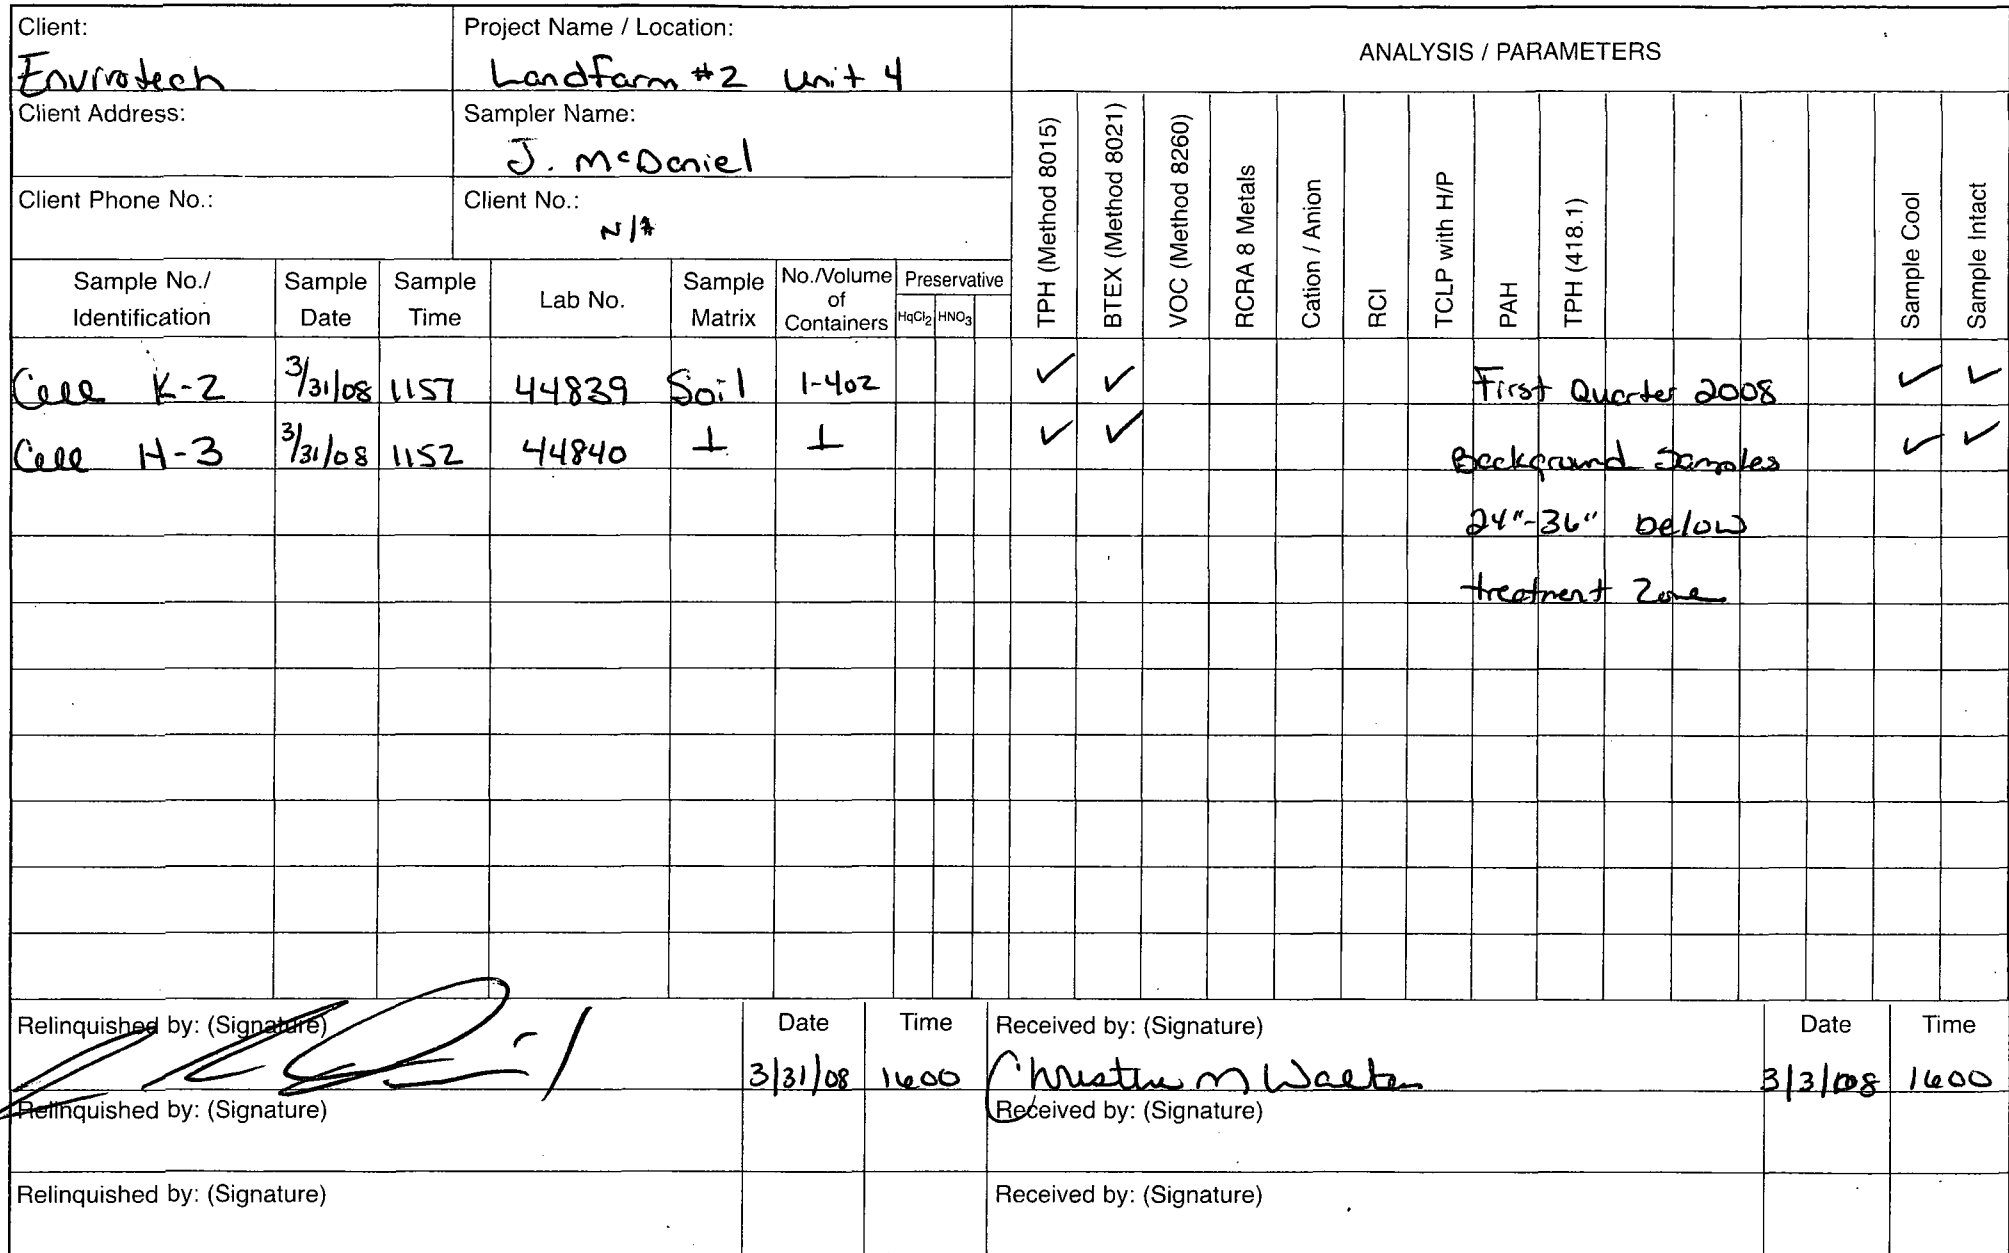 Client:
Envirotech
Project Name / Location:
Landfarm #2 Unit 4
ANALYSIS / PARAMETERS
Client Address:
Sampler Name:
J. McDaniel
Client Phone No.:
Client No.:
N/A
Sample No./ Identification
Sample Date
Sample Time
Lab No.
Sample Matrix
No./Volume of Containers
Preservative
HgCl2 HNO3
TPH (Method 8015)
BTEX (Method 8021)
VOC (Method 8260)
RCRA 8 Metals
Cation / Anion
RCI
TCLP with H/P
PAH
TPH (418.1)
Sample Cool
Sample Intact
Cell K-2 3/31/08 1157 44839 Soil 1-4oz ✓ ✓ First Quarter 2008 ✓ ✓
Cell H-3 3/31/08 1152 44840 ⊥ ⊥ ✓ ✓ Background Samples ✓ ✓
24"-36" below
treatment Zone
Relinquished by: (Signature)
Date
Time
Received by: (Signature)
Date
Time
3/31/08 1600 Christine M Walters 3/31/08 1600
Relinquished by: (Signature)
Received by: (Signature)
Relinquished by: (Signature)
Received by: (Signature)